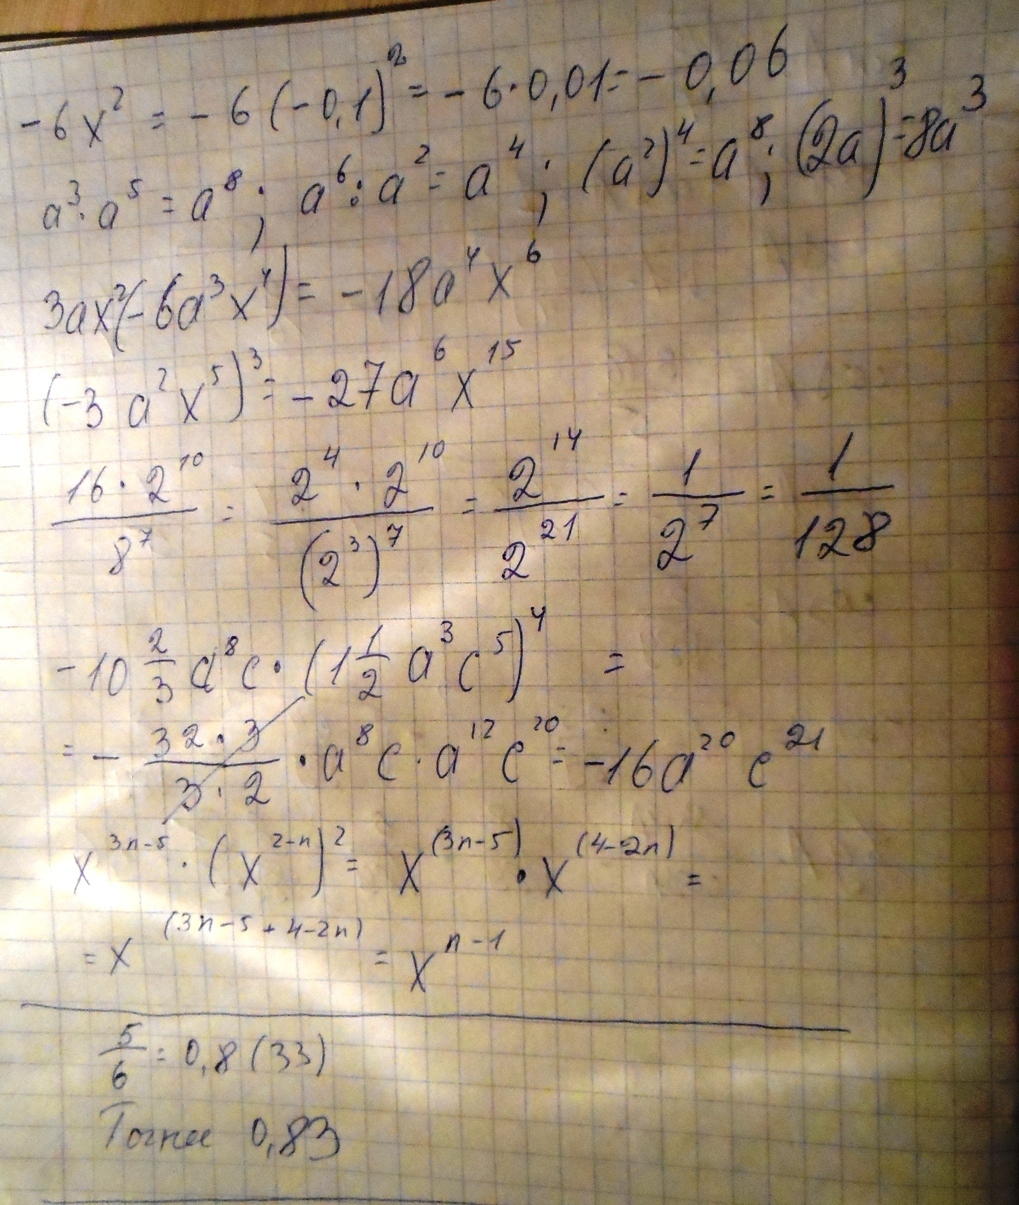 -6x² = -6(-0,1)² = -6·0,01 = -0,06
a³·a⁵ = a⁸; a⁶:a² = a⁴; (a²)⁴ = a⁸; (2a)³ = 8a³
3ax²(-6a³x⁴) = -18a⁴x⁶
(-3a²x⁵)³ = -27a⁶x¹⁵
16·2¹⁰/8⁷ = 2⁴·2¹⁰/(2³)⁷ = 2¹⁴/2²¹ = 1/2⁷ = 1/128
-10 2/3 a⁸c·(1 1/2 a³c⁵)⁴ =
= - 32·3/3·2 ·a⁸c·a¹²c²⁰ = -16a²⁰c²¹
x³ⁿ⁻⁵·(x²⁻ⁿ)² = x⁽³ⁿ⁻⁵⁾·x⁽⁴⁻²ⁿ⁾ =
= x⁽³ⁿ⁻⁵⁺⁴⁻²ⁿ⁾ = xⁿ⁻¹
5/6 = 0,8(33)
Точнее 0,83